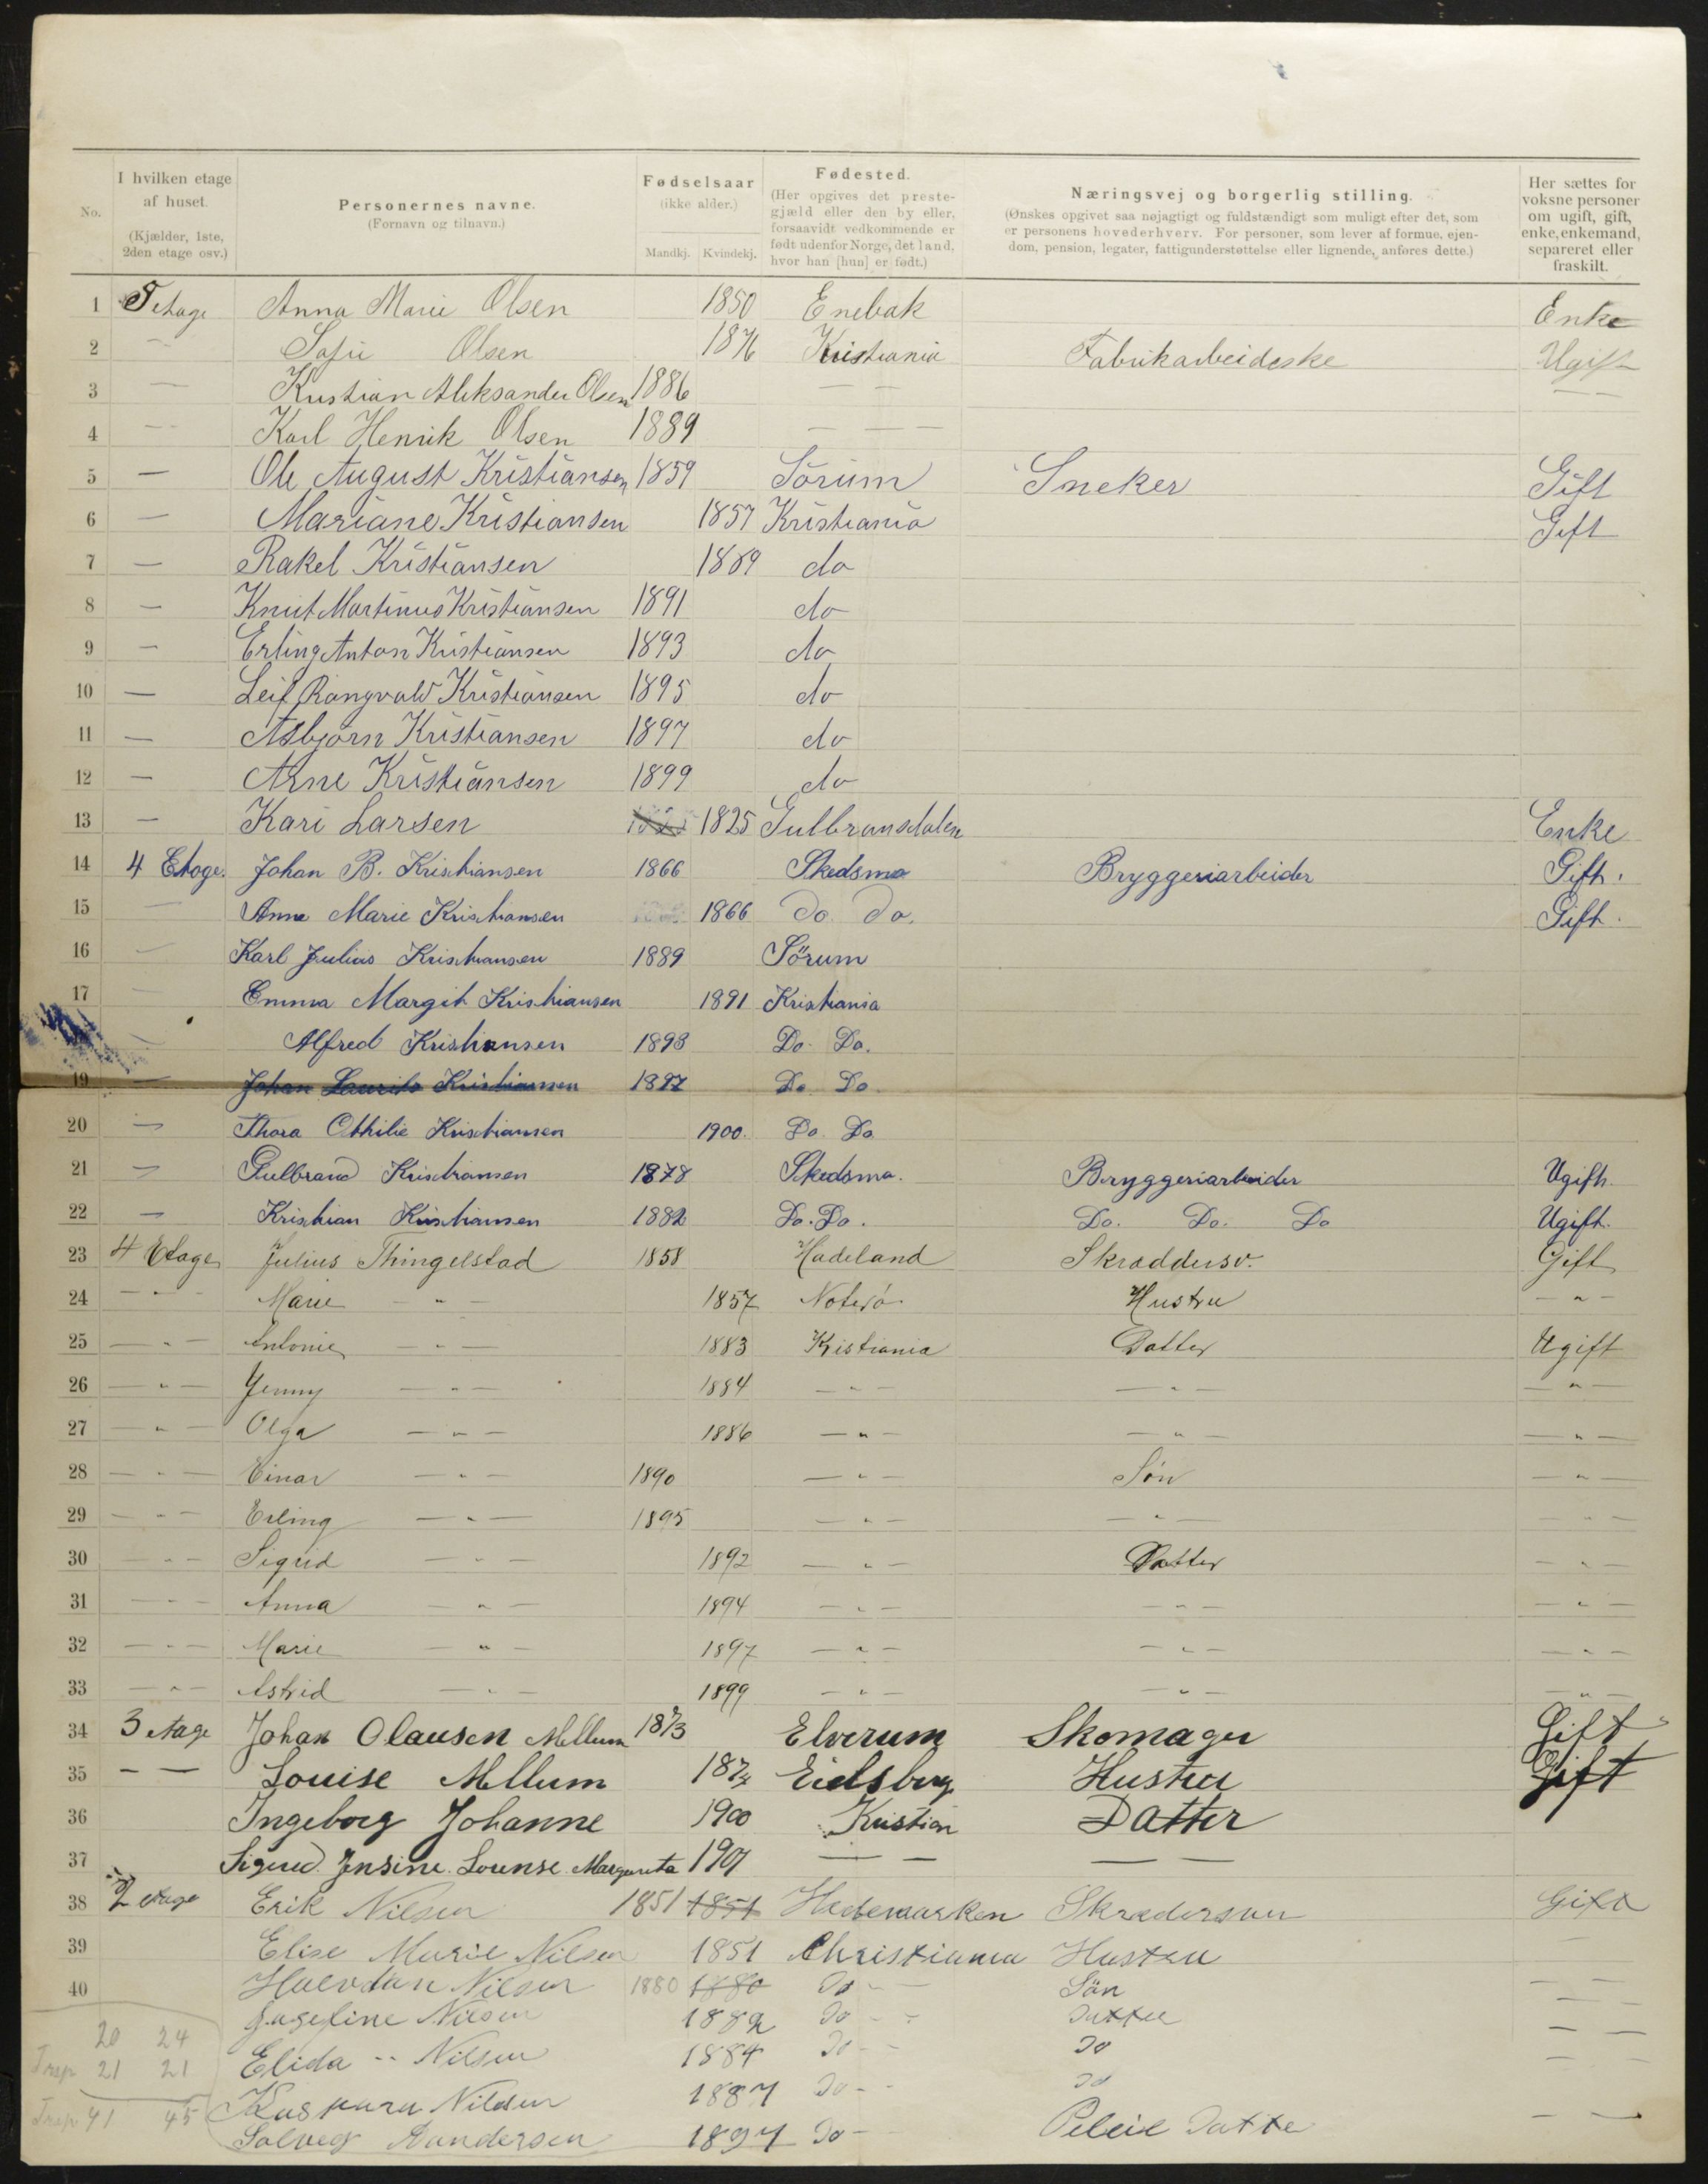 No. I hvilken etage af huset. (Kjælder, 1ste, 2den etage osv.) Personernes navne. (Fornavn og tilnavn.) Fødselsaar (ikke alder.) Mandkj. Kvindekj. Fødested. (Her opgives det prestegjæld eller den by eller, forsaavidt vedkommende er født udenfor Norge, det land, hvor han [hun] er født.) Næringsvej og borgerlig stilling. (Ønskes opgivet saa nøjagtigt og fuldstændigt som muligt efter det, som er personens hovederhverv. For personer, som lever af formue, ejendom, pension, legater, fattigunderstøttelse eller lignende, anføres dette.) Her sættes for voksne personer om ugift, gift, enke, enkemand, separeret eller fraskilt.
1 5 etage Anna Marie Olsen 1850 Enebak Enke
2 — Sofie Olsen 1876 Kristiania Fabrikarbeideske Ugift
3 — Kristian Aleksander Olsen 1886 — — — —
4 — Karl Henrik Olsen 1889 — — —
5 — Ole August Kristiansen 1859 Sörum Sneker Gift
6 — Mariane Kristiansen 1857 Kristiania Gift
7 — Rakel Kristiansen 1889 do
8 — Knut Martinus Kristiansen 1891 do
9 — Erling Anton Kristiansen 1893 do
10 — Leif Rangvald Kristiansen 1895 do
11 — Asbjørn Kristiansen 1897 do
12 — Arne Kristiansen 1899 do
13 — Kari Larsen 1825 Gulbransdalen Enke
14 4 Etage. Johan B. Kristiansen 1866 Skedsmo Bryggeriarbeider Gift.
15 — Anne Marie Kristiansen 1866 Do Do. Gift.
16 — Karl Julius Kristiansen 1889 Sörum
17 — Emma Margit Kristiansen 1891 Kristiania
— Alfred Kristiansen 1893 Do Do.
19 — Johan Laurits Kristiansen 1897 Do Do.
20 — Thora Othilie Kristiansen 1900. Do Do.
21 — Gulbrand Kristiansen 1878 Skedsmo. Bryggeriarbeider Ugift.
22 — Kristian Kristiansen 1882 Do. Do. Do. Do. Do Ugift.
23 4 Etage Julius Thingelstad 1858 Hadeland Skræddersv. Gift
24 — " — Marie — " — 1857 Noterö Hustru — " —
25 — " — Antonie — " — 1883 Kristiania Datter Ugift
26 — " — Jenny — " — 1884 — " — — " — — " —
27 — " — Olga — " — 1886 — " — — " — — " —
28 — " — Einar — " — 1890 — " — Søn — " —
29 — " — Erling — " — 1895 — " — — " — — " —
30 — " — Sigrid — " — 1892 — " — Datter — " —
31 — " — Anna — " — 1894 — " — — " — — " —
32 — " — Marie — " — 1897 — " — — " — — " —
33 — " — Astrid — " — 1899 — " — — " — — " —
34 3 etage Johan Olausen Mellum 1873 Elverum Skomager Gift
35 — — Louise Mellum 1874 Eidsberg Hustru Gift
36 Ingeborg Johanne 1900 Kristian Datter
37 Sigrid Jensine Lounse Margareta 1901 — — — —
38 2 etage Erik Nilsen 1851 1851 Hedemarken Skrædersven Gift
39 Elise Marie Nilsen 1851 Christiania Hustru —
40 Halvdan Nilsen 1880 1880 Do - Sön — —
Josefine Nilsen 1882 Do - - Datter — —
Elida -- Nilsen 1884 Do - - Do — —
Kaspara Nilsen 1887 Do - - Do — —
Solveg Aandersen 1897 Do - Pleie Datte — —
20 24
21 21
41 45